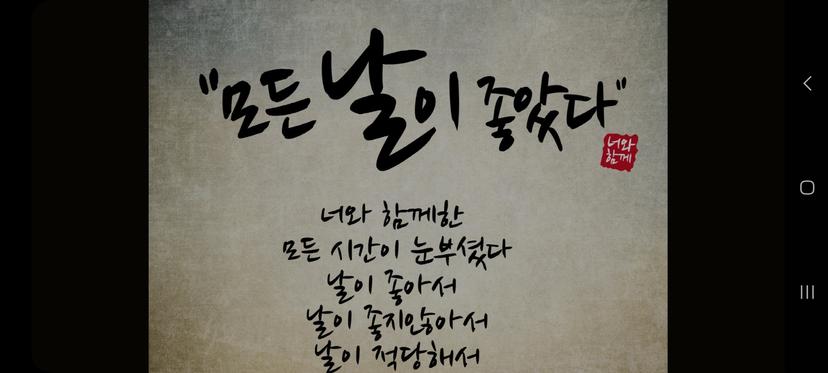 "모든 날이 좋았다"
너와
함께
너와 함께한
모든 시간이 눈부셨다
날이 좋아서
날이 좋지않아서
날이 적당해서